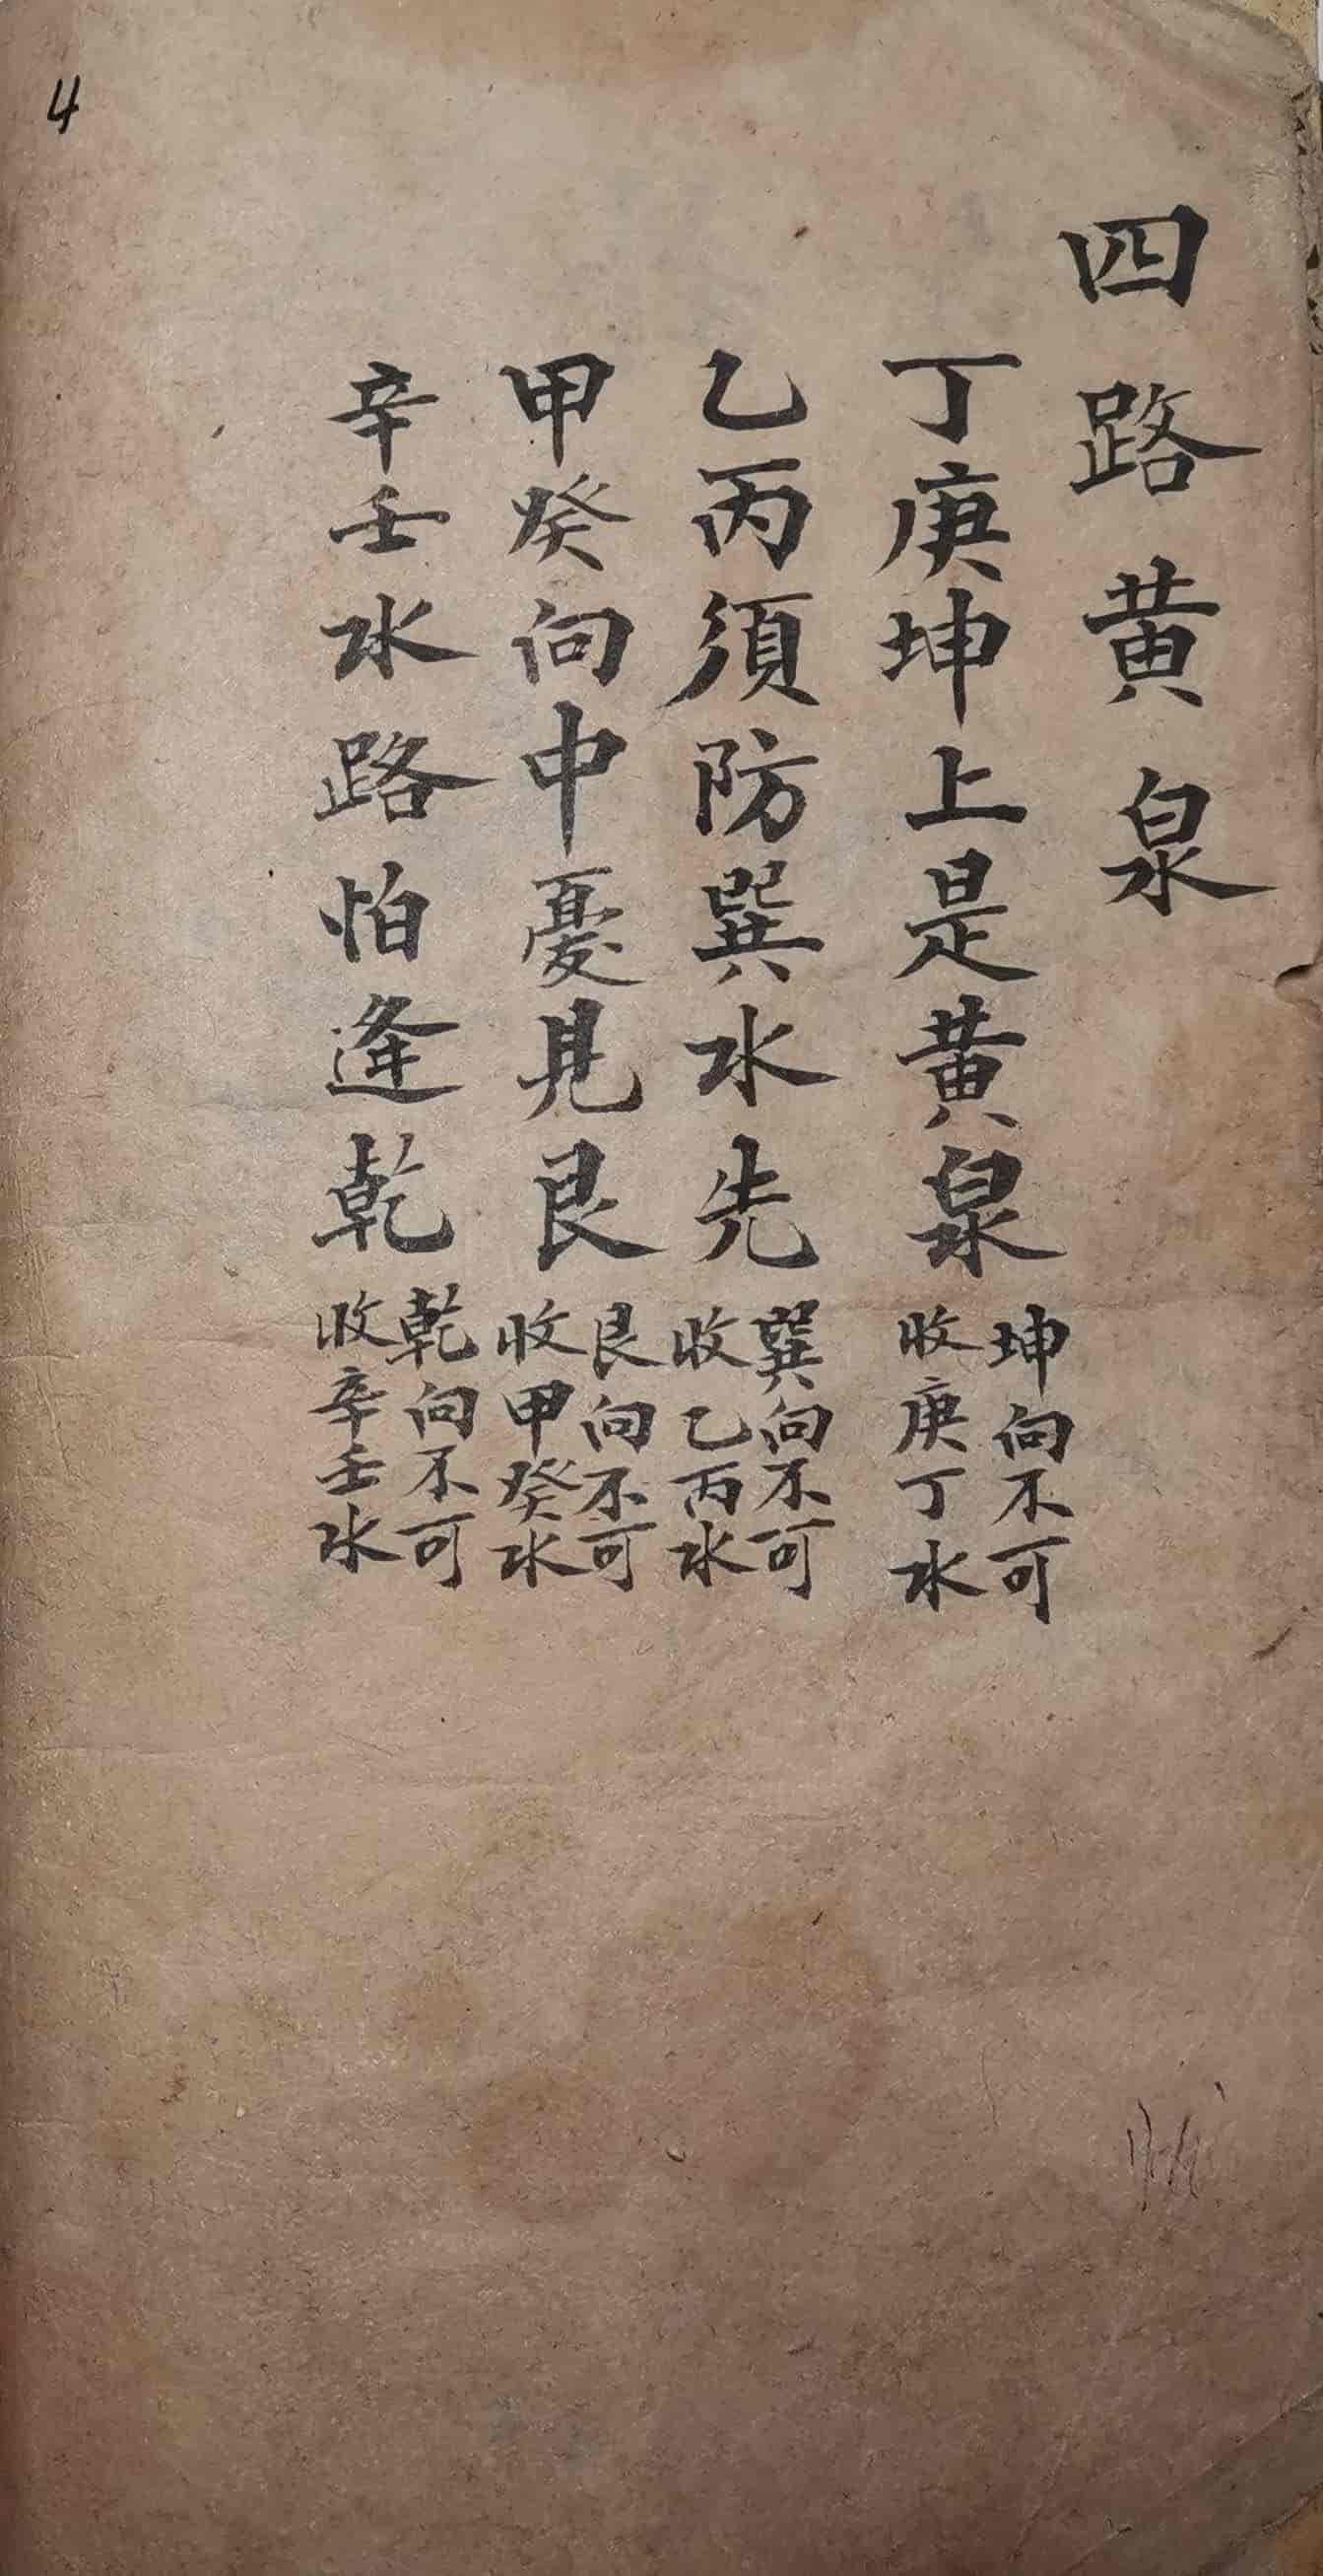 4
四路黄泉
丁庚坤上是黄泉
坤向不可
收庚丁水
乙丙須防巽水先
巽向不可
收乙丙水
甲癸向中憂見艮
艮向不可
收甲癸水
辛壬水路怕逢乾
乾向不可
收辛壬水